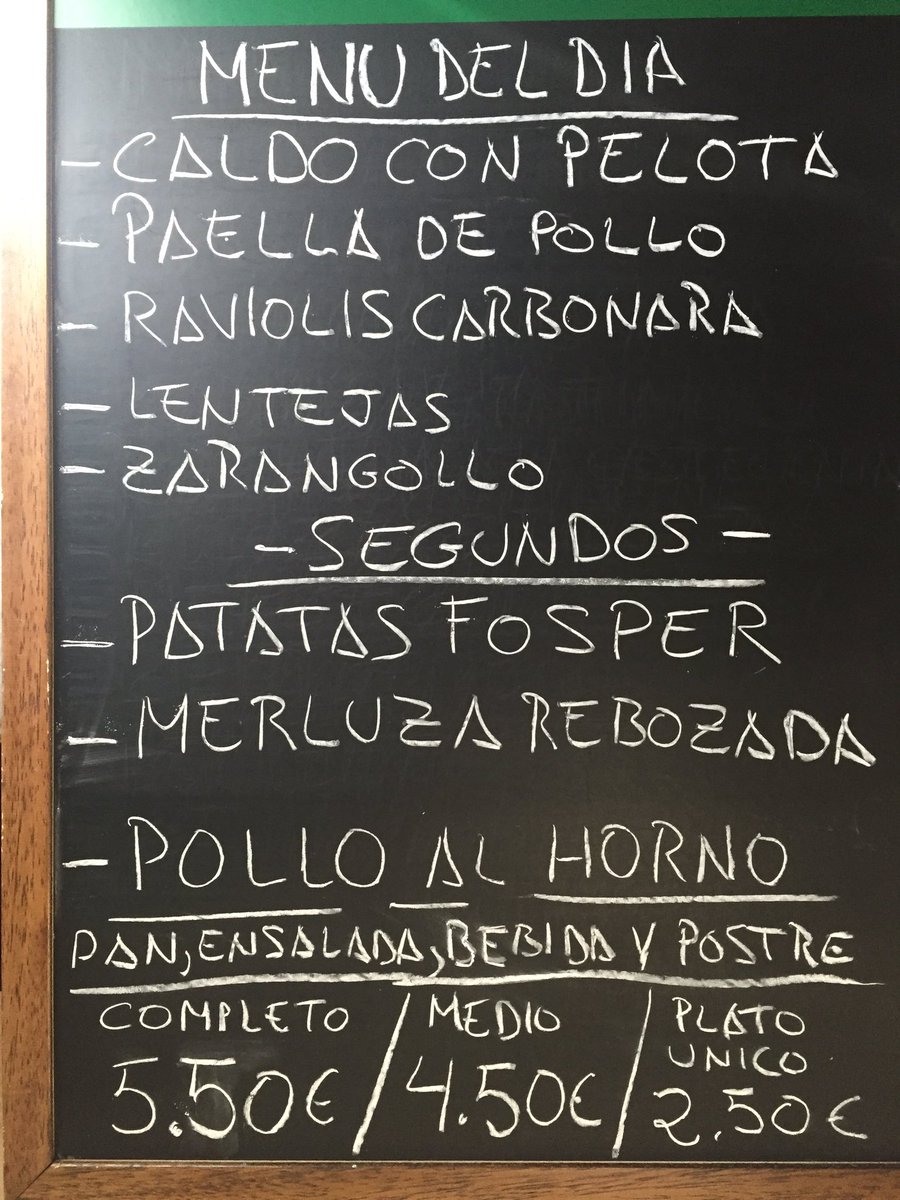 MENU DEL DIA
- CALDO CON PELOTA
- PAELLA DE POLLO
- RAVIOLIS CARBONARA
- LENTEJAS
- ZARANGOLLO
- SEGUNDOS -
- PATATAS FOSPER
- MERLUZA REBOZADA
- POLLO AL HORNO
PAN, ENSALADA, BEBIDA Y POSTRE
COMPLETO / MEDIO / PLATO UNICO
5.50€ / 4.50€ / 2,50€